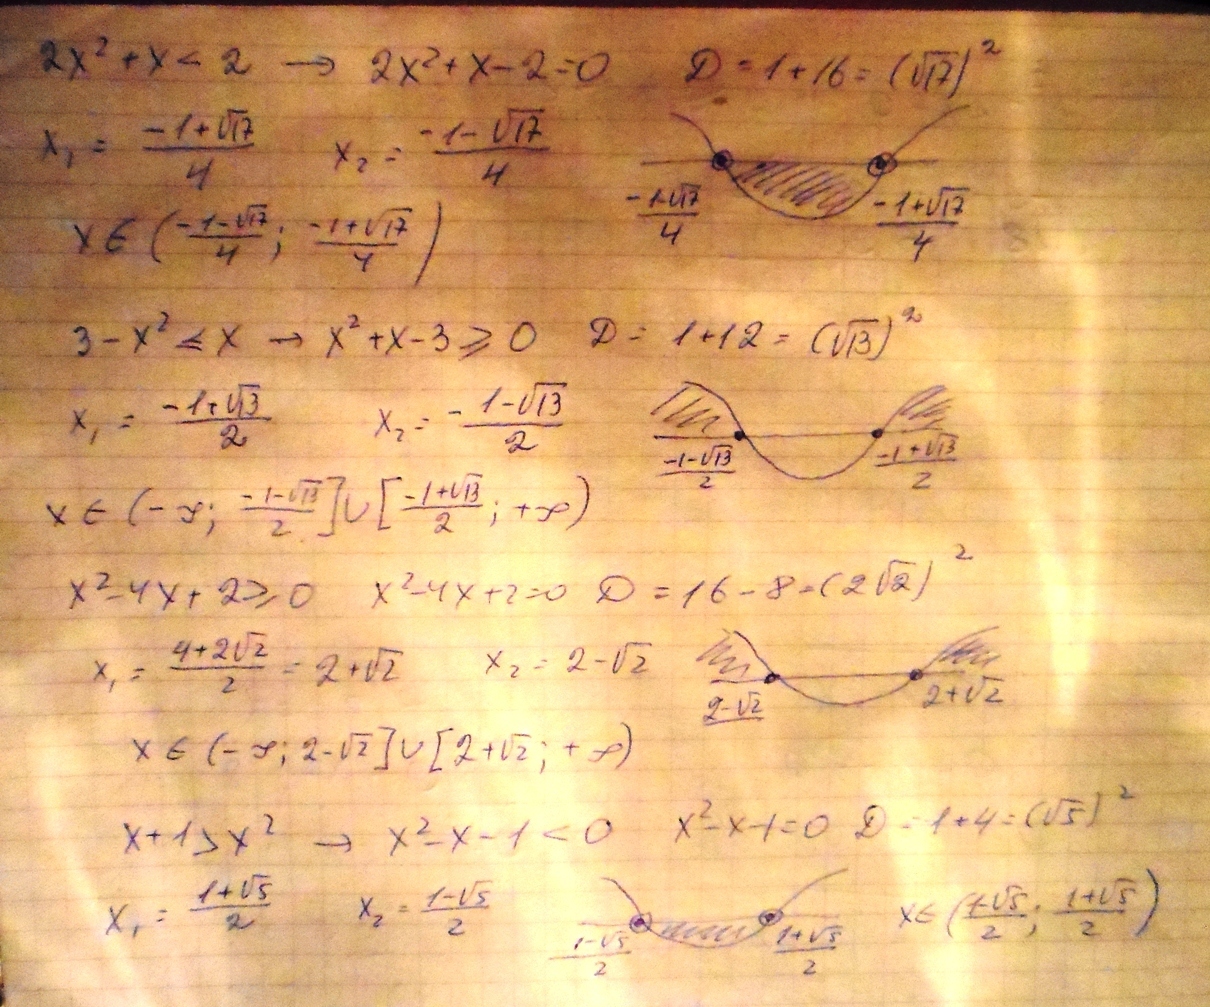 2x² + x < 2 → 2x² + x - 2 = 0 D = 1 + 16 = (√17)²
x₁ = (-1+√17)/4 x₂ = (-1-√17)/4
(-1-√17)/4 (-1+√17)/4
x ∈ ((-1-√17)/4 ; (-1+√17)/4)
3 - x² ≤ x → x² + x - 3 ⩾ 0 D = 1 + 12 = (√13)²
x₁ = (-1+√13)/2 x₂ = - (1-√13)/2
(-1-√13)/2 (-1+√13)/2
x ∈ (-∞; (-1-√13)/2] ∪ [(-1+√13)/2 ; +∞)
x² - 4x + 2 ⩾ 0 x² - 4x + 2 = 0 D = 16 - 8 = (2√2)²
x₁ = (4+2√2)/2 = 2+√2 x₂ = 2-√2
2-√2 2+√2
x ∈ (-∞; 2-√2] ∪ [2+√2; +∞)
x + 1 > x² → x² - x - 1 < 0 x² - x - 1 = 0 D = 1 + 4 = (√5)²
x₁ = (1+√5)/2 x₂ = (1-√5)/2 x ∈ ((1-√5)/2 ; (1+√5)/2)
(1-√5)/2 (1+√5)/2